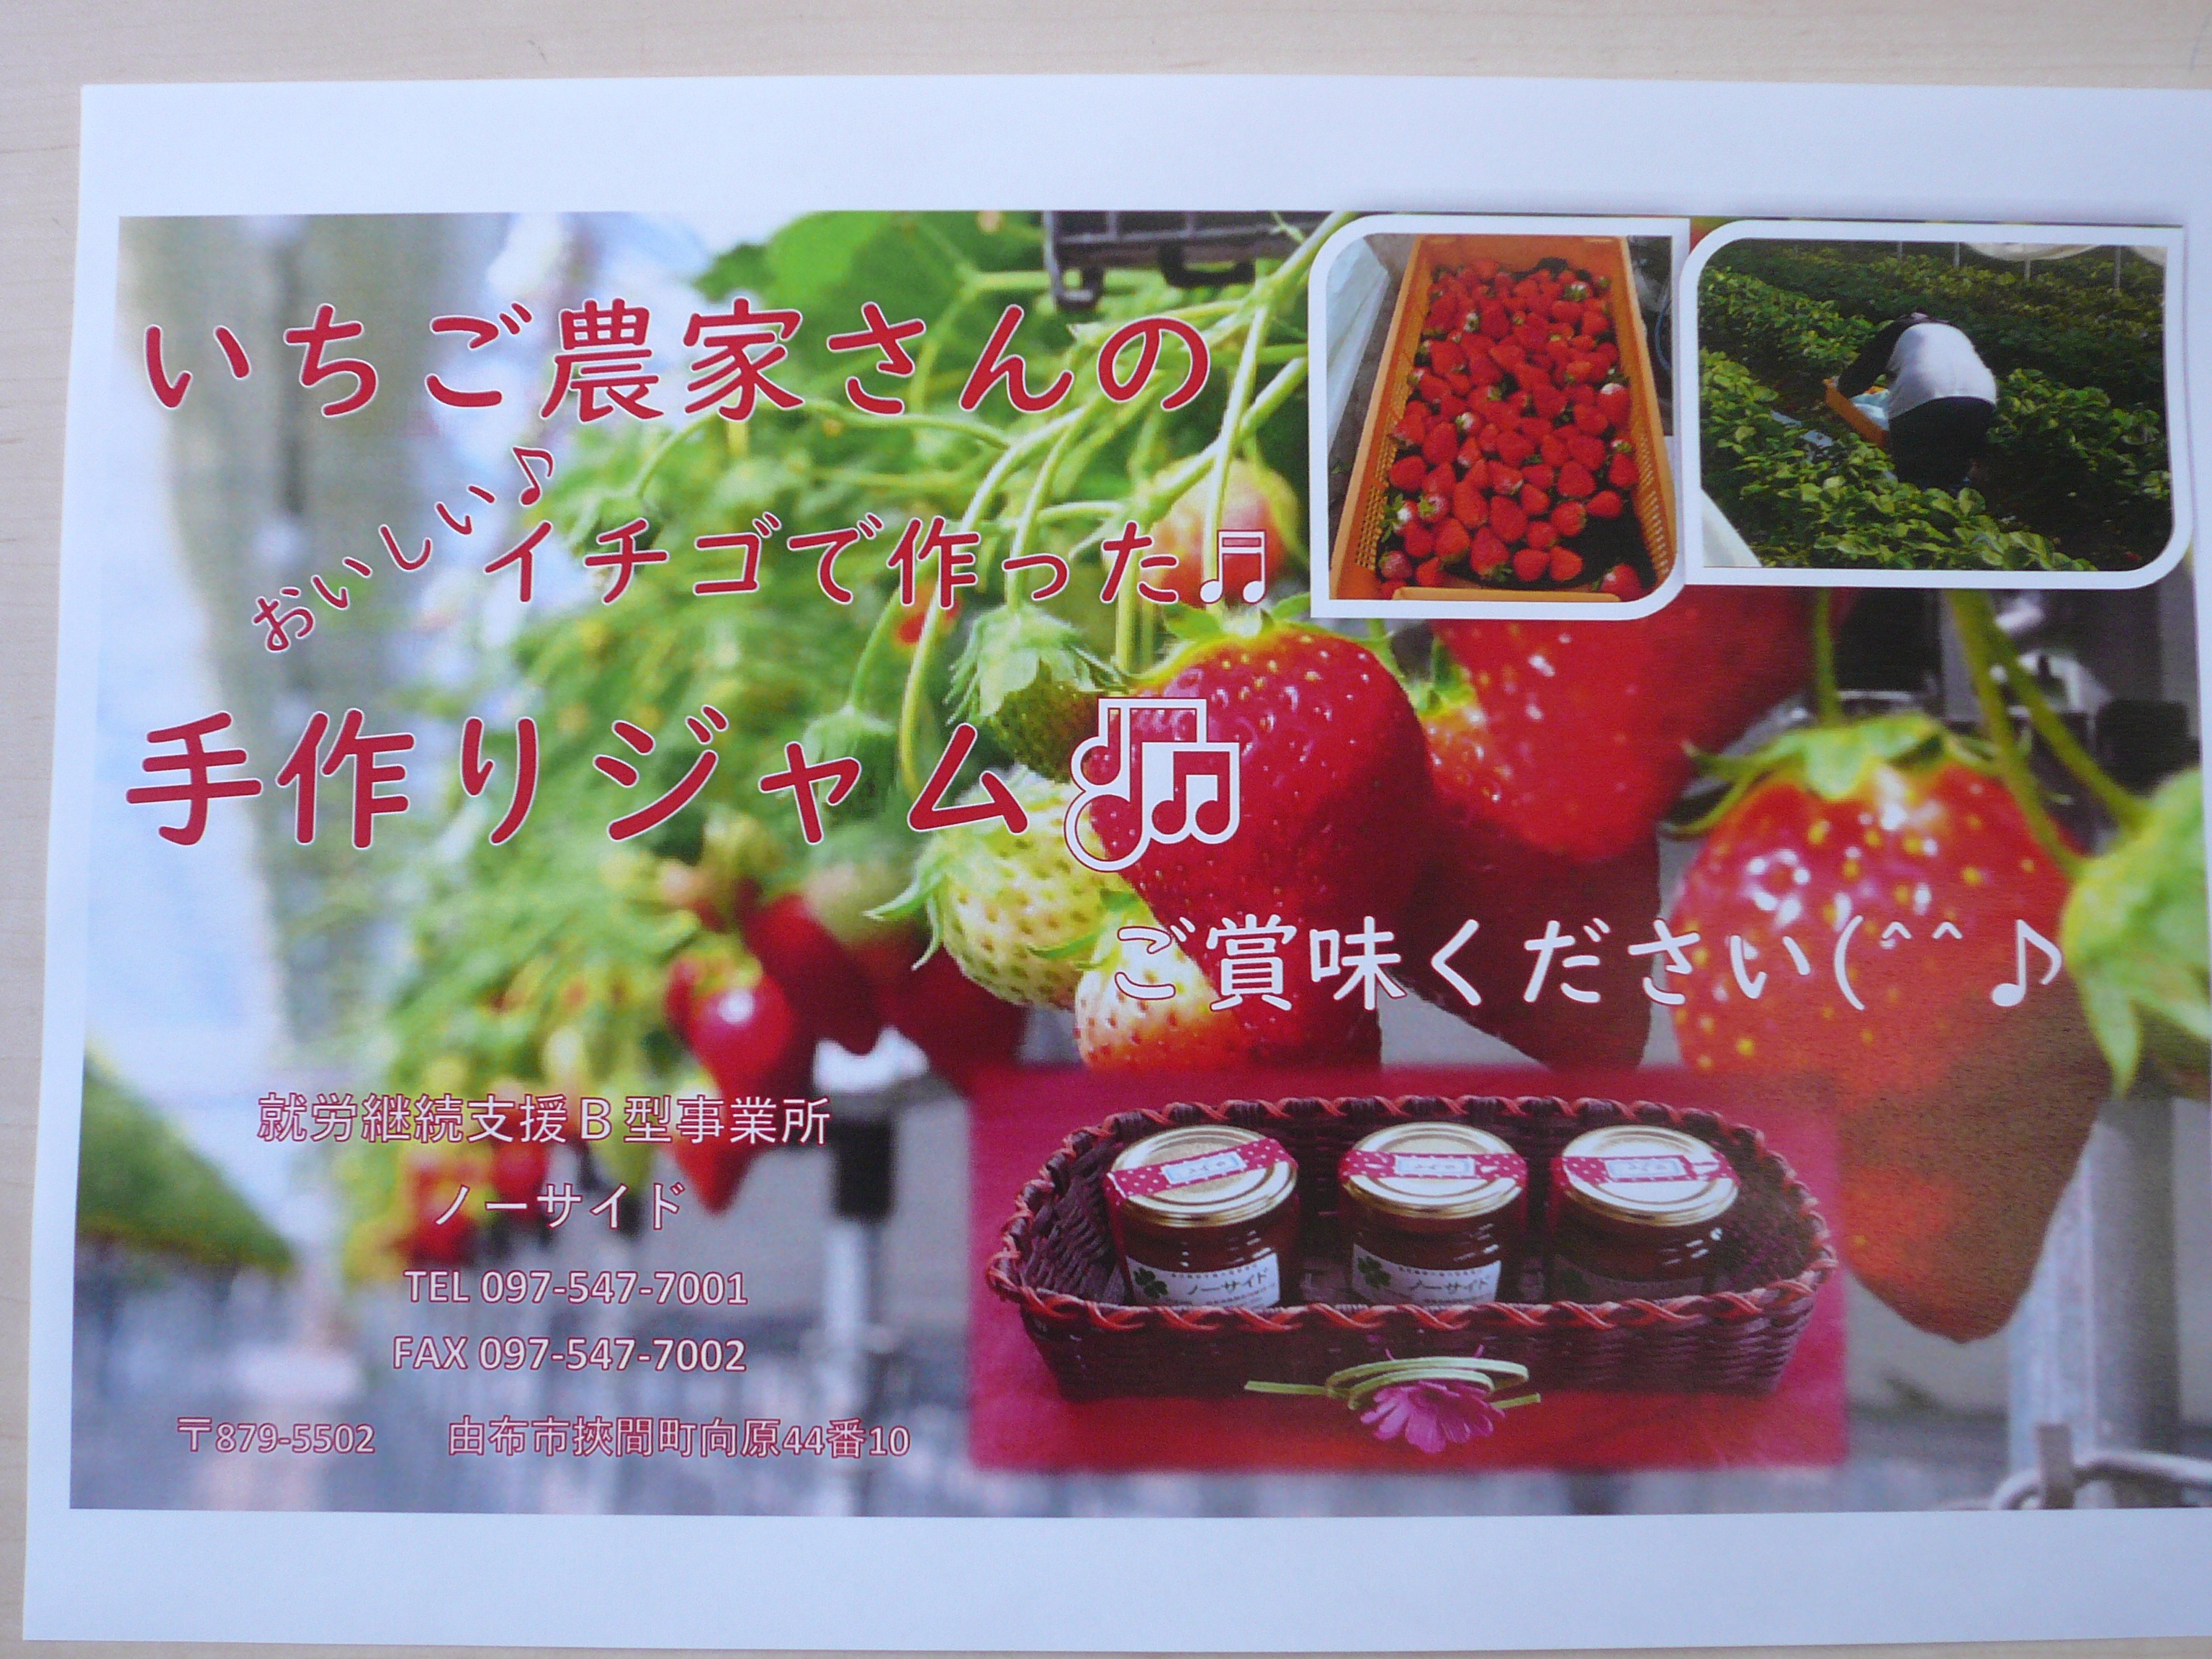 いちご農家さんの
おいしい♪
イチゴで作った♬
手作りジャム
ご賞味ください(^^♪
就労継続支援B型事業所
ノーサイド
TEL 097-547-7001
FAX 097-547-7002
〒879-5502 由布市挾間町向原44番10
ノーサイド
ノーサイド